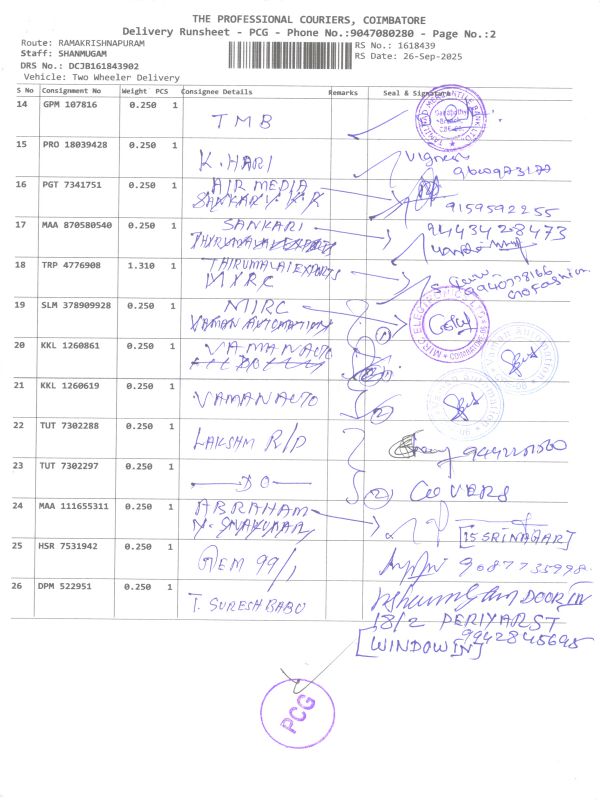 THE PROFESSIONAL COURIERS, COIMBATORE
Delivery Runsheet - PCG - Phone No.:9047080280 - Page No.:2
Route: RAMAKRISHNAPURAM
RS No.: 1618439
Staff: SHANMUGAM
RS Date: 26-Sep-2025
DRS No.: DCJB161843902
Vehicle: Two Wheeler Delivery
S No Consignment No Weight PCS Consignee Details Remarks Seal & Signature
14 GPM 107816 0.250 1 TMB
15 PRO 18039428 0.250 1 K.HARI Vignesh
16 PGT 7341751 0.250 1 AIR MEDIA 9159592255
17 MAA 870580540 0.250 1 SANKARI 9443428473
THIRUMALAI EXPORTS
18 TRP 4776908 1.310 1 THIRUMALAI EXPORTS
MIRC
19 SLM 378909928 0.250 1 MIRC
VAMAN AUTOMATION
20 KKL 1260861 0.250 1 VAMAN AUTO
21 KKL 1260619 0.250 1 VAMAN AUTO (2)
22 TUT 7302288 0.250 1 LAKSHMI R/P
23 TUT 7302297 0.250 1 DO (2) COVERS
24 MAA 111655311 0.250 1 ABRAHAM
[15 SRINAGAR]
25 HSR 7531942 0.250 1 GEM 99/1 9087735998
26 DPM 522951 0.250 1 T. SURESH BABU DOOR IN
18/2 PERIYAR ST
[WINDOW IN] 9942845695
PCG